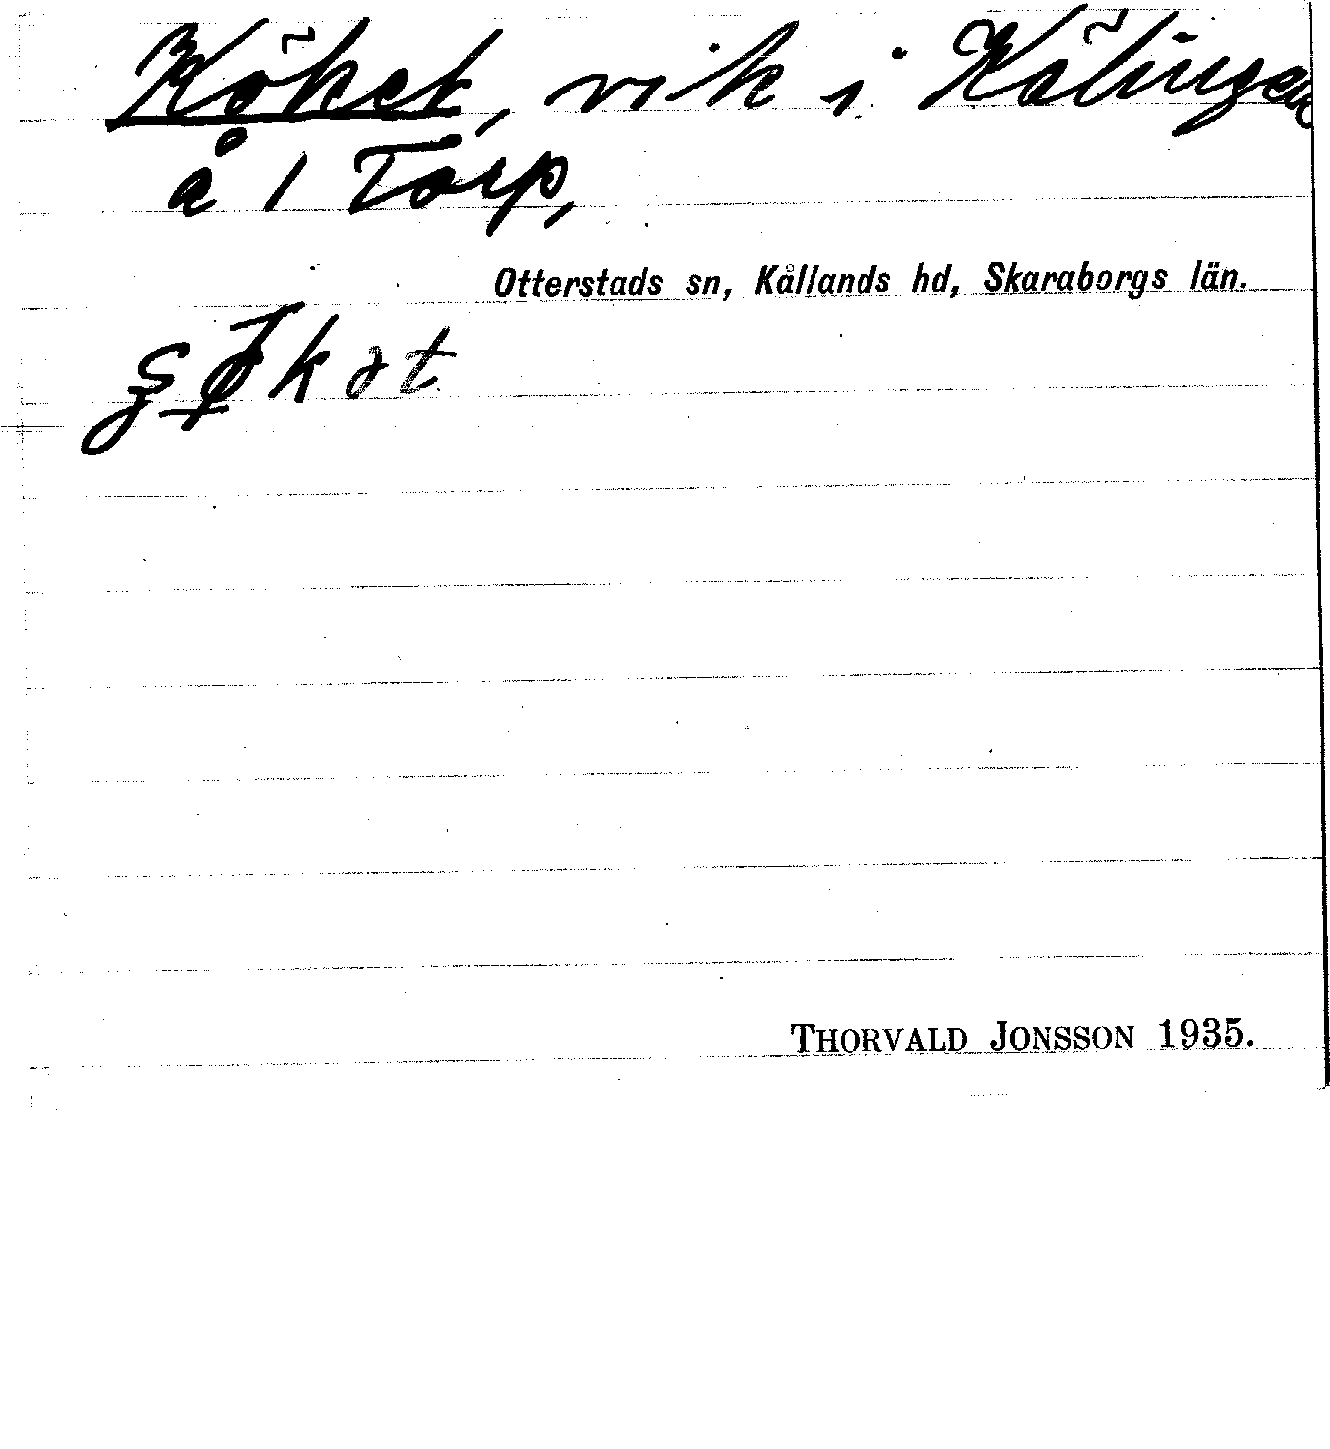 Köket, vik i Kölingen
å 1 Torp,
Otterstads sn, Kållands hd, Skaraborgs län.
Thorvald Jonsson 1935.